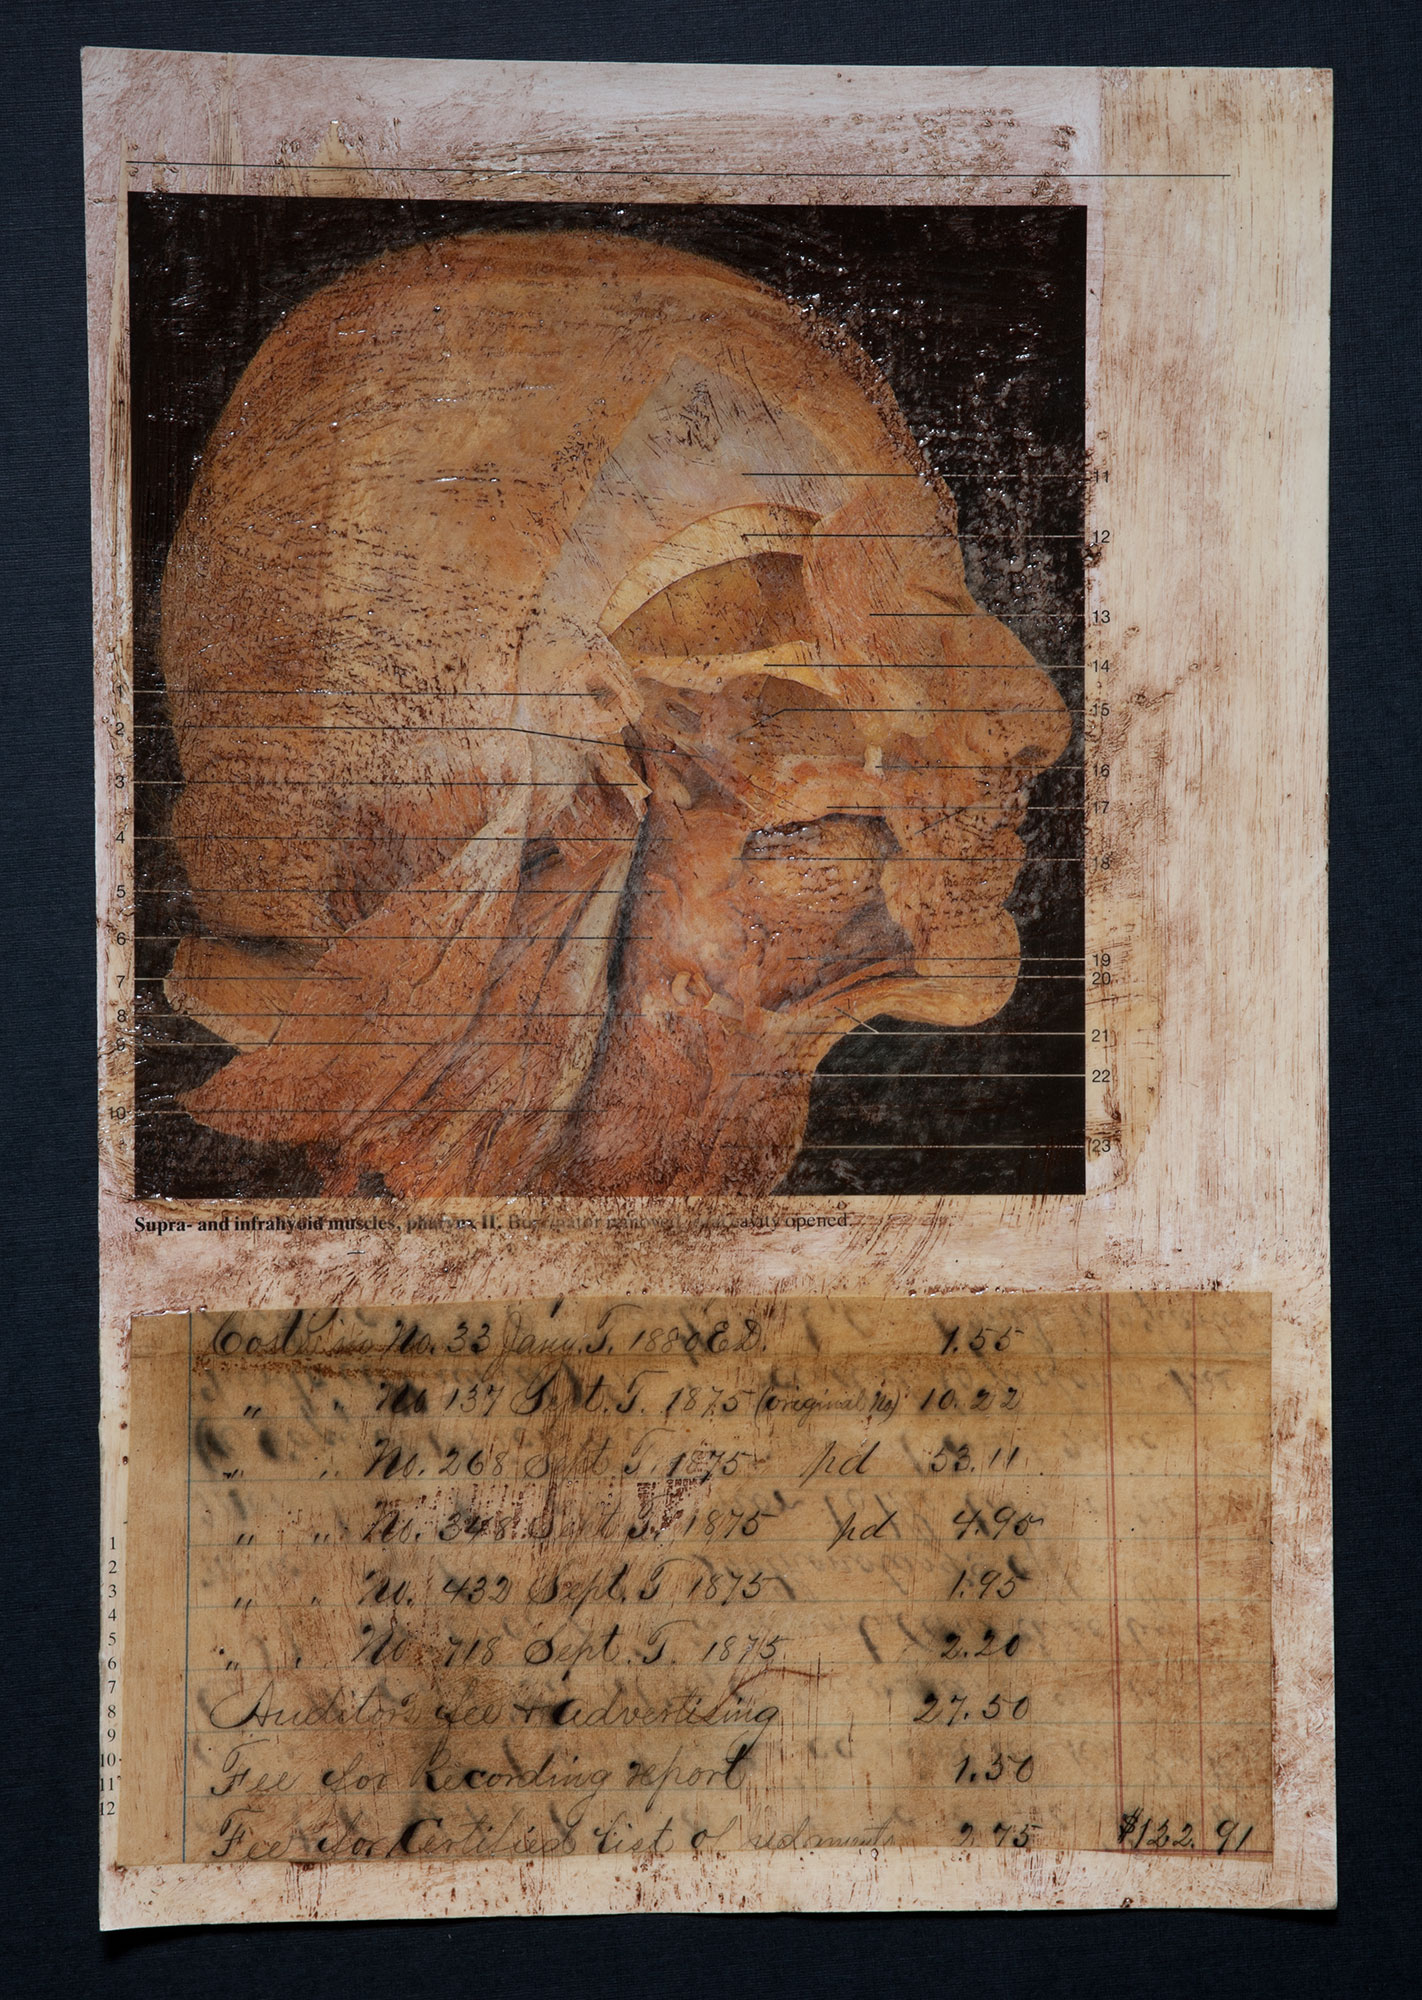 11
12
13
14
1
15
2
16
3
17
4
18
5
6
19
7
20
8
21
9
22
10
23
Supra- and infrahyoid muscles, pharynx II. Buccinator removed, oral cavity opened.
No. 33 Jany. T. 1880 E.D. 1.55
" " No 137 Sept. T. 1875 (original No) 10.22
" " No. 268 Sept T. 1875 pd 53.11
" " No. 348 Sept T. 1875 pd 4.95
" " No. 432 Sept. T 1875 1.95
" " No 718 Sept. T. 1875 2.20
Auditors fee + advertising 27.50
Fee for Recording report 1.50
Fee for Certified list of 2.75 $122.91
1
2
3
4
5
6
7
8
9
10
11
12